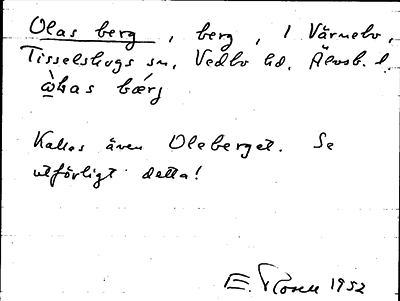 Olas berg, berg, 1 Värnebo,
Tisselskogs sn, Vedbo hd, Älvsb. l.
ὼ̲las bærj
Kallas även Oleberget. Se
utförligt detta!
E. Rosell 1952